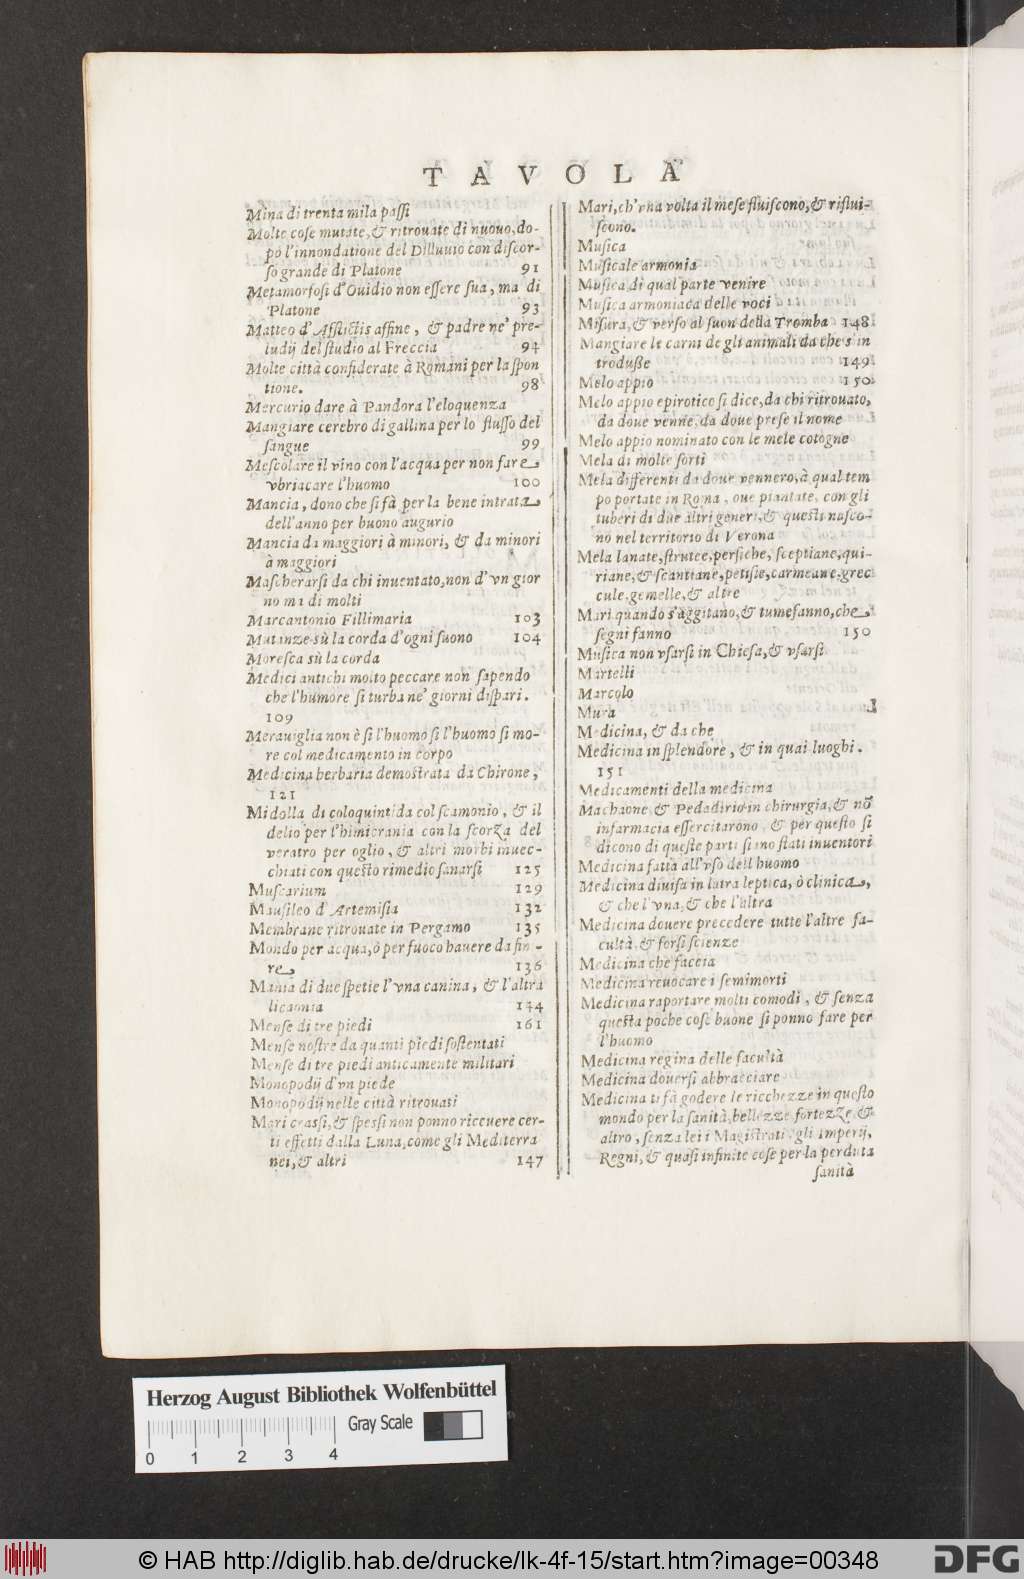 TAVOLA
Mina di trenta mila paſſi
Molte coſe mutate, & ritrouate di nuouo, do-
pò l'innondatione del Dilluuio con diſcor-
ſo grande di Platone 91
Metamorfoſi d'Ouidio non eſſere ſua, ma di
Platone 93
Matteo d'Afflictis affine, & padre ne' pre-
ludij del ſtudio al Freccia 94
Molte città conſiderate à Romani per la ſpon
tione. 98
Mercurio dare à Pandora l'eloquenza
Mangiare cerebro di gallina per lo fluſſo del
ſangue 99
Meſcolare il vino con l'acqua per non fare
vbriacare l'huomo 100
Mancia, dono che ſi fà per la bene intrata
dell'anno per buono augurio
Mancia da maggiori à minori, & da minori
à maggiori
Maſcherarſi da chi inuentato, non d'vn gior
no mà di molti
Marcantonio Fillimaria 103
Matinze sù la corda d'ogni ſuono 104
Moreſca sù la corda
Medici antichi molto peccare non ſapendo
che l'humore ſi turba ne' giorni diſpari.
109
Merauiglia non è ſi l'huomo ſi l'huomo ſi mo-
re col medicamento in corpo
Medicina herbaria demoſtrata da Chirone,
121
Midolla di coloquintida col ſcamonio, & il
delio per l'himicrania con la ſcorza del
veratro per oglio, & altri morbi inuec-
chiati con queſto rimedio ſanarſi 125
Muſcarium 129
Mauſileo d'Artemiſia 132
Membrane ritrouate in Pergamo 135
Mondo per acqua, ò per fuoco hauere da fin-
re 136
Mania di due ſpetie l'vna canina, & l'altra
licaonia 144
Menſe di tre piedi 161
Menſe noſtre da quanti piedi ſoſtentati
Menſe di tre piedi anticamente militari
Monopodij d'vn piede
Monopodij nelle città ritrouati
Mari craſſi, & ſpeſſi non ponno riceuere cer-
ti effetti dalla Luna, come gli Mediterra
nei, & altri 147
Mari, ch'vna volta il meſe fluiſcono, & rifluì-
ſcono.
Muſica
Muſicale armonia
Muſica di qual parte venire
Muſica armoniaca delle voci
Miſura, & verſo al ſuon della Tromba 148
Mangiare le carni de gli animali da che s'in
troduſſe 149
Melo appio 150
Melo appio epirotico ſi dice, da chi ritrouato,
da doue venne, da doue preſe il nome
Melo appio nominato con le mele cotogne
Mela di molte ſorti
Mela differenti da doue vennero, à qual tem
po portate in Roma, oue piantate, con gli
tuberi di due altri generi, & queſti naſco-
no nel territorio di Verona
Mela lanate, ſtrutee, perſiche, ſceptiane, qui-
riane, & ſcantiane, petiſie, carmeane, grec
cule, gemelle, & altre
Mari quando s'aggitano, & tumefanno, che
ſegni fanno 150
Muſica non vſarſi in Chieſa, & vſarſi
Martelli
Marcolo
Mura
Medicina, & da che
Medicina in ſplendore, & in quai luoghi.
151
Medicamenti della medicina
Machaone & Pedadirio in chirurgia, & nō
in farmacia eſſercitarono, & per queſto ſi
dicono di queſte parti ſi mo ſtati inuentori
Medicina fatta all'vſo dell'huomo
Medicina diuiſa in iatra leptica, ò clinica,
& che l'vna, & che l'altra
Medicina douere precedere tutte l'altre fa-
cultà, & forſi ſcienze
Medicina che faccia
Medicina reuocare i ſemimorti
Medicina raportare molti comodi, & ſenza
queſta poche coſe buone ſi ponno fare per
l'huomo
Medicina regina delle facultà
Medicina douerſi abbracciare
Medicina ti fà godere le ricchezze in queſto
mondo per la ſanità, bellezze, fortezze, &
altro, ſenza lei i Magiſtrati, gli Imperij,
Regni, & quaſi infinite coſe per la perduta
ſanità
Herzog August Bibliothek Wolfenbüttel
Gray Scale
0 1 2 3 4
© HAB http://diglib.hab.de/drucke/lk-4f-15/start.htm?image=00348
DFG